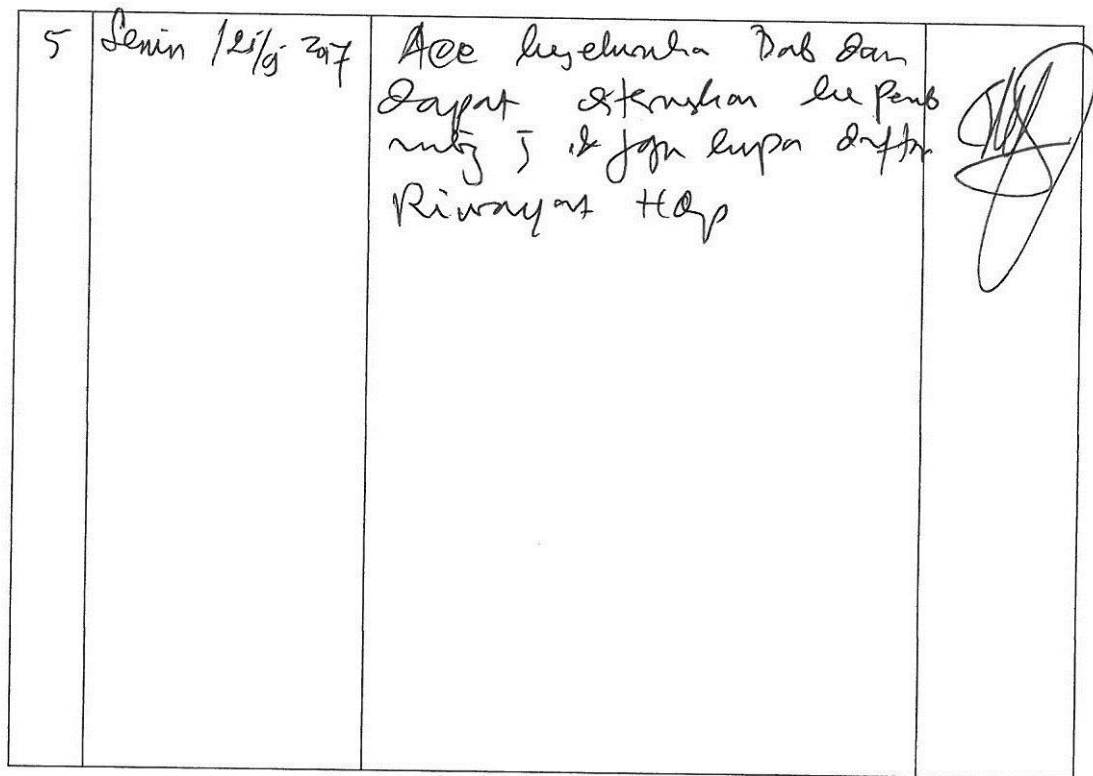 5
Senin / 25/9 2017
Acc keseluruhan Bab dan
dapat diteruskan ke Pemb
I & jgn lupa daftar
Riwayat Hdp